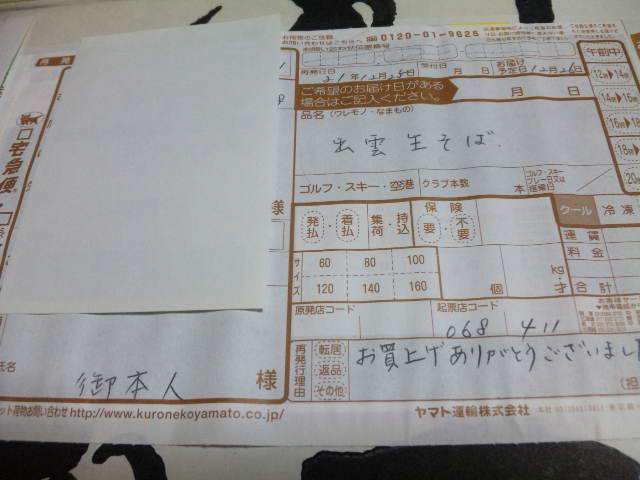 お荷物のご依頼、
お問い合わせはこちらへ 0120-01-9625
お問い合わせ伝票番号
再発
再発行日 21年12月25日 受付日 月 日 お届け予定日 12月26日
午前中
12時
14時
16時
18時
ご希望のお届け日がある
場合はご記入ください。 月 日
品名 (ワレモノ・なまもの)
出雲生そば
宅急便
ゴルフ・スキー・空港 クラブ本数 本
様
発払・着払 集荷・持込 保険 要・不要
クール 冷凍
運賃
料金
合計
サイズ 60 80 100
120 140 160
個 kg・才
原発店コード 起票店コード
068 411
再発行理由 転居 返品 その他
お買上げありがとうございまし
氏名
御本人 様
(担
ット荷物お問い合わせ http://www.kuronekoyamato.co.jp/ ヤマト運輸株式会社